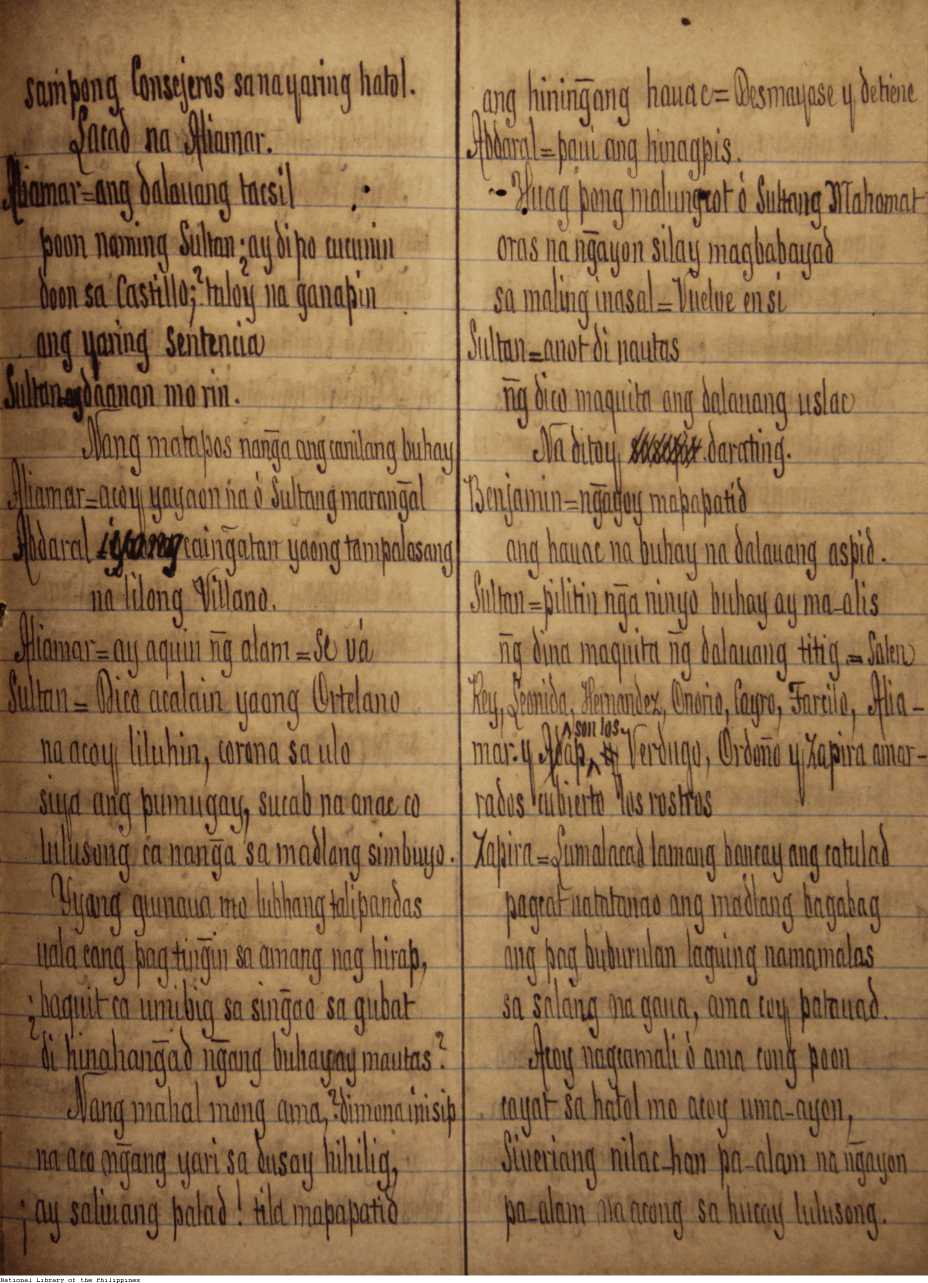 sampong Consejeros sa nayaring hatol.
Lacad na Aliamar.
Aliamar=ang dalauang tacsil
poon naming Sultan; ay di po cucunin
doon sa Castillo; ¿tuloy na ganapin?
ang yaring sentencia
Sultan= gdaanan mo rin.
Nang matapos nanḡa ang canilang buhay
Aliamar=acoy yayaon na ó Sultang maranḡal
Abdaral iyong cainḡatan yaong tampalasang
na lilong Villano.
Aliamar=ay aquin n̄g alam=Se vá
Sultan= Dico acalain yaong Ortelano
na acoy liluhin, corona sa ulo
siya ang pumugay, sucab na anac co
lulusong ca nanḡa sa madlang simbuyo.
Yyong guinaua mo lubhang talipandas
uala cang pag tinḡin sa amang nag hirap,
¿baquit ca umibig sa sinḡao sa gubat
di hinahanḡad nḡang buhayay mautas?
Nang mahal mong ama, ¿dimona inisip
na aco nḡang yari sa dusay hihilig,
¡ay saliuang palad! tila mapapatid
ang hininḡang hauac= Desmayase y detiene
Abdaral=paui ang hinagpis.
Huag pong malungcot ó Sultang Mahomat
oras na nḡayon silay magbabayad
sa maling inasal=Vuelve en si
Sultan=anot di nautas
n̄g dico maquita ang dalauang uslac
Na ditoy darating.
Benjamin=nḡayoy mapapatid
ang hauac na buhay na dalauang aspid.
Sultan=pilitin nḡa ninyo buhay ay ma-alis
n̄g dina maquita n̄g dalauang titig = Salen
Rey, Leonida, Hernandez, Onorio, Cayro, Farcilo, Alia-
mar. y Adap, son los Verdugo, Ordoño y Zapira amar-
rados cubierto los rostros
Zapira=Lumalacad lamang bancay ang catulad
pagcat natatanao ang madlang bagabag
ang pag buburulan laguing namamalas
sa salang na gaua, ama coy patauad.
Acoy nagcamali ó ama cong poon
cayat sa hatol mo acoy uma-ayon,
Sineriang nilac-han pa-alam na nḡayon
pa-alam na acong sa hucay lulusong.
National Library of the Philippines